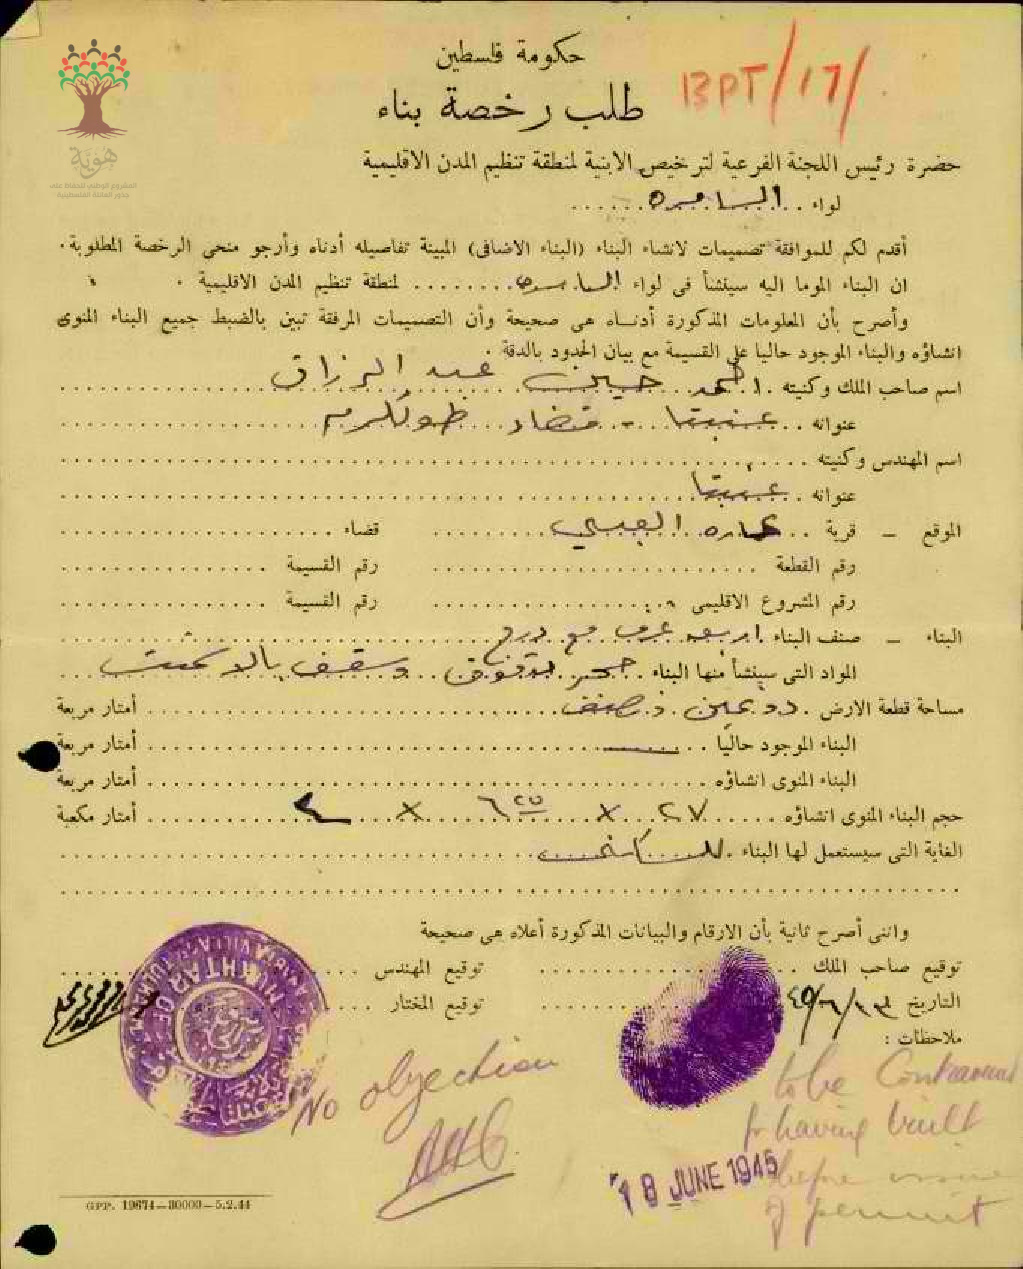 حكومة فلسطين
BPT/17/
طلب رخصة بناء
هوية
المشروع الوطني للحفاظ على
جذور العائلة الفلسطينية
حضرة رئيس اللجنة الفرعية لترخيص الابنية لمنطقة تنظيم المدن الاقليمية
لواء السامره
أقدم لكم للموافقة تصميمات لانشاء البناء (البناء الاضافى) المبينة تفاصيله أدناه وأرجو منحى الرخصة المطلوبة.
ان البناء الموما اليه سينشأ فى لواء السامره لمنطقة تنظيم المدن الاقليمية
وأصرح بأن المعلومات المذكورة أدناه هى صحيحة وأن التصميمات المرفقة تبين بالضبط جميع البناء المنوى
انشاؤه والبناء الموجود حاليا على القسيمة مع بيان الحدود بالدقة .
اسم صاحب الملك وكنيته احمد حسين عبد الرزاق
عنوانه عنبتا - قضاء طولكرم
اسم المهندس وكنيته
عنوانه عنبتا
الموقع – قرية قضاء
رقم القطعة رقم القسيمة
رقم المشروع الاقليمى رقم القسيمة
البناء – صنف البناء اربعه غرف مع درج
المواد التى سينشأ منها البناء حجر مدقوق وسقف بالاسمنت
مساحة قطعة الارض ونصف أمتار مربعة
البناء الموجود حاليا أمتار مربعة
البناء المنوى انشاؤه أمتار مربعة
حجم البناء المنوى انشاؤه ٢٧ × ٦ × ٤ أمتار مكعبة
الغاية التى سيستعمل لها البناء للسكن
واننى أصرح ثانية بأن الارقام والبيانات المذكورة أعلاه هى صحيحة
توقيع صاحب الملك توقيع المهندس
التاريخ توقيع المختار
MUKHTAR OF
ملاحظات :
No objection
to be Contravened
for having built
before issue
of permit
18 JUNE 1945
GPP. 19674—30000—5.2.44